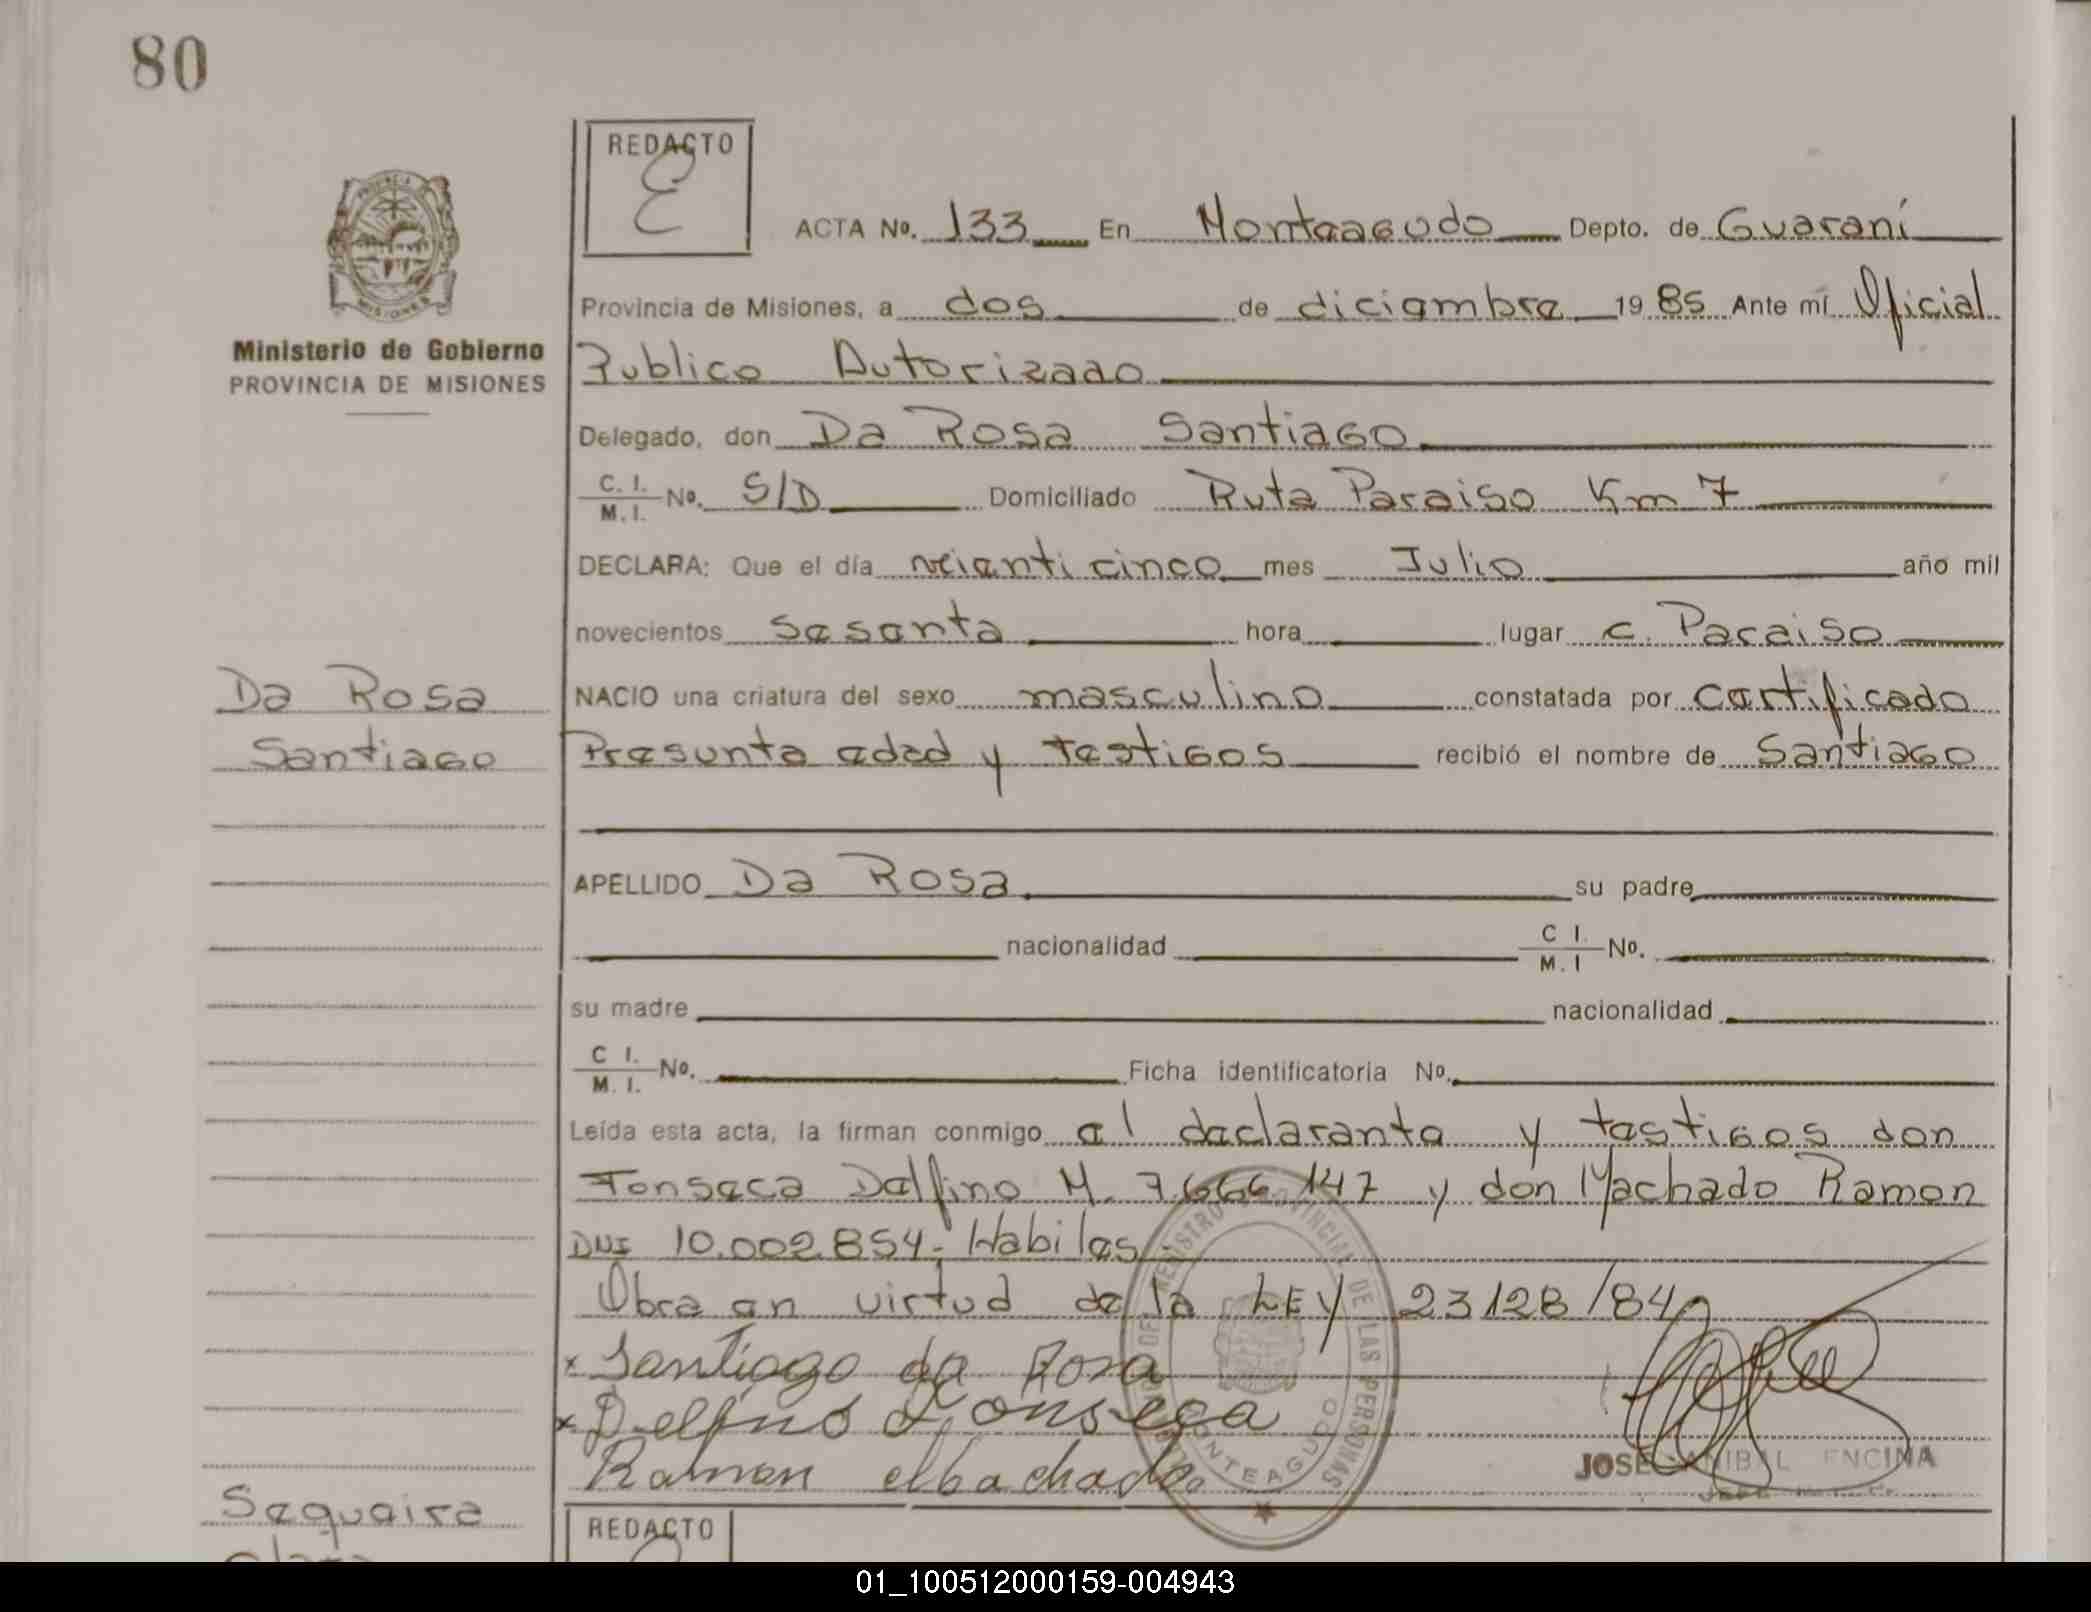 80
REDACTO
E
ACTA No. 133 En Monteagudo Depto. de Guaraní
Provincia de Misiones, a dos de diciembre 1985 Ante mí Oficial
Publico Autorizado
Ministerio de Gobierno
PROVINCIA DE MISIONES
Delegado, don Da Rosa Santiago
C. I. / M. I. No. S/D Domiciliado Ruta Paraiso Km 7
DECLARA: Que el día veinticinco mes Julio año mil
novecientos sesenta hora lugar c. Paraiso
Da Rosa
Santiago
NACIO una criatura del sexo masculino constatada por certificado
Presunta edad y testigos recibió el nombre de Santiago
APELLIDO Da Rosa su padre
nacionalidad C I. / M. I No.
su madre nacionalidad
C I. / M. I. No. Ficha identificatoria No.
Leída esta acta, la firman conmigo el declarante y testigos don
Fonseca Delfino M. 7.666.147 y don Machado Ramon
DNI 10.002.854. Habiles
Obra en virtud de la LEY 23128/84
x Santiago da Rosa
x Delfino Fonsega
Ramon Machado
REGISTRO PROVINCIAL DE LAS PERSONAS
MONTEAGUDO
JOSE ANIBAL ENCINA
Sequeira
REDACTO
01_100512000159-004943